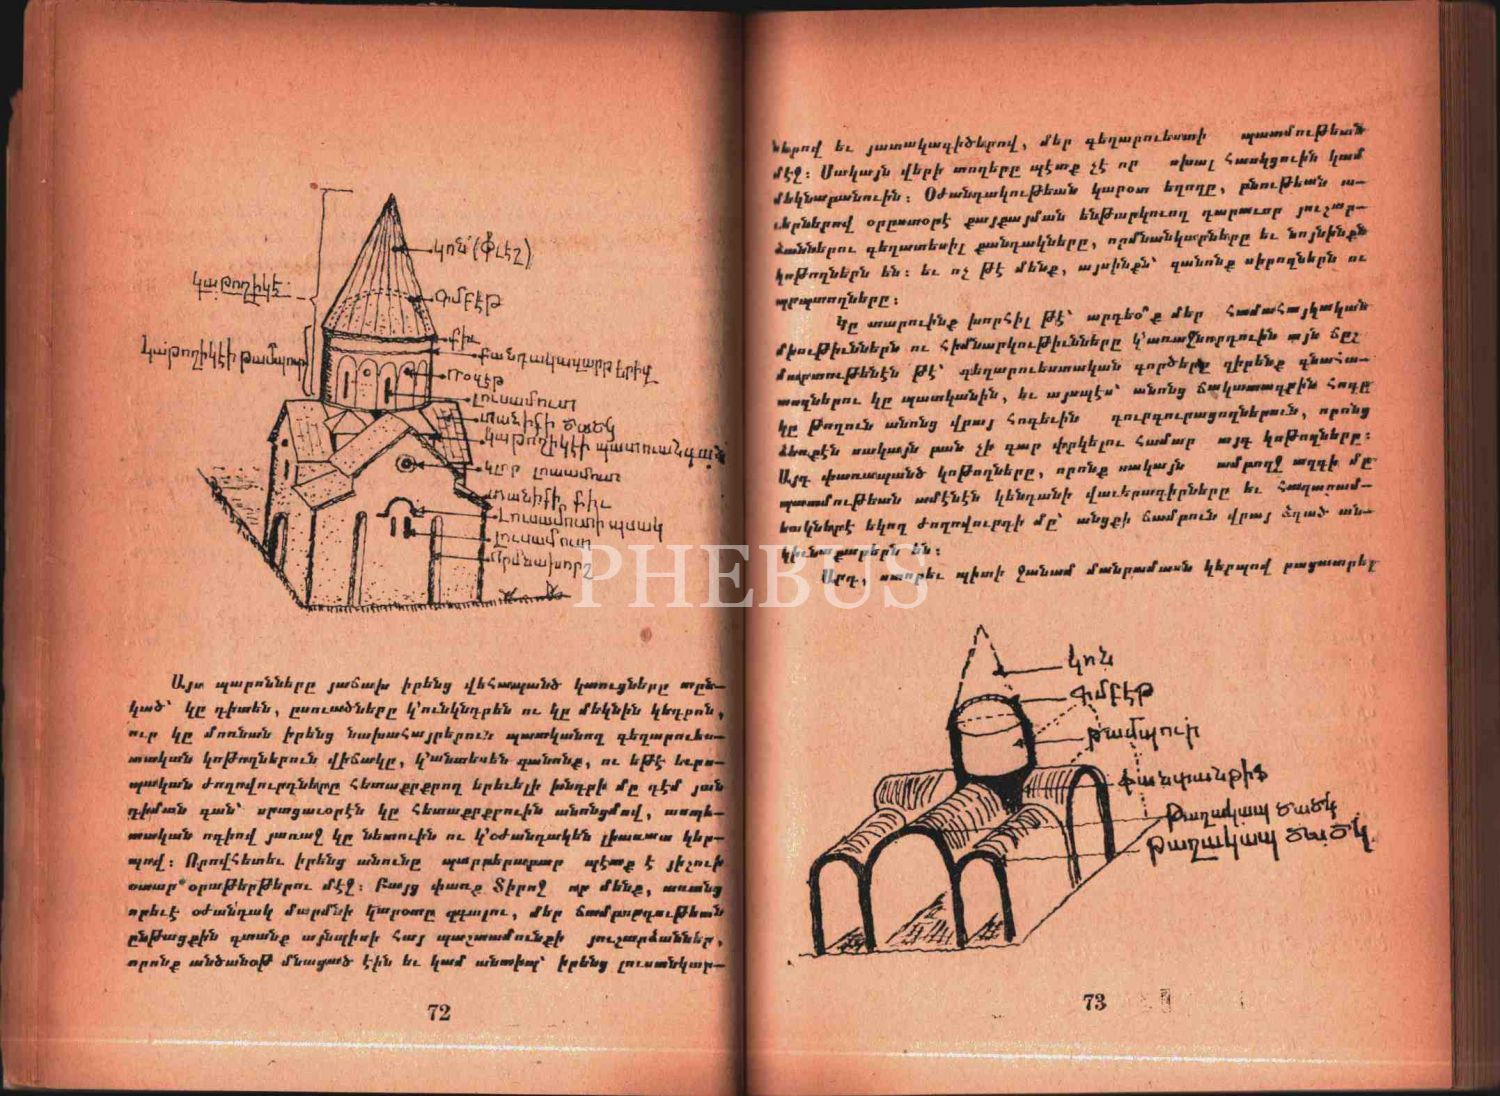 կոն (փլէշ)
կոթողիկէ
գմբէթ
քիւ
Կաթողիկէի թամպուր
լուսամուտ
տանիքի ծածկ
կաթողիկէի պատուանդան
կլոր լուսամուտ
տանիքի քիւ
Լուսամուտի պսակ
լուսամուտ
Այս պարոնները յաճախ իրենց վեհապանծ կառուցները առն-
կած՝ կը դիտեն, ըսուածները կ՚ունկնդրեն ու կը մեկնին կեդրոն,
ուր կը մոռնան իրենց նախահայրերուն պատկանող գեղարուես-
տական կոթողներուն վիճակը, կ՚անտեսեն զանոնք, ու եթէ եւրո-
պական ժողովուրդները հետաքրքրող երեւելի խնդրի մը դէմ յան
դիման գան՝ սրտցաւօրէն կը հետաքրքրուին անոնցմով, ասպե-
տական ոգիով յառաջ կը նետուին ու կ՚օժանդակեն լիառատ կեր-
պով։ Որովհետեւ իրենց անունը պարբերաբար պէտք է յիշուի
օտար օրաթերթերու մէջ։ Բայց փառք Տիրոջ որ մենք, առանց
որեւէ օժանդակ մարմնի կարօտը զգալու, մեր ճամբորդութեան
ընթացքին գտանք այնպիսի հայ պաշտամունքի յուշարձաններ,
որոնք անծանօթ մնացած էին եւ կամ անտիպ՝ իրենց լուսանկար-
72
ներով եւ յատակագիծերով, մեր գեղարուեստի պատմութեան
մէջ։ Սակայն վերի տողերը պէտք չէ որ սխալ հասկցուին կամ
մեկնաբանուին։ Օժանդակութեան կարօտ եղողը, բնութեան ա-
ւերներով օրըստօրէ քայքայման ենթարկուող դարաւոր յուշար-
ձաններու գեղատեսիլ քանդակները, որմնանկարները եւ նոյնինքն
կոթողներն են։ եւ ոչ թէ մենք, այսինքն՝ զանոնք սիրողներն ու
պրպտողները։
Կը տարուինք խորհիլ թէ՝ արդեօ՞ք մեր համահայկական
միութիւններն ու հիմնարկութիւնները կ՚առաջնորդուին այն ճըշ
մարտութենէն թէ՝ գեղարուեստական գործերը զիրենք գնահա-
տողներու կը պատկանին, եւ այսպէս՝ անոնց ճակատագրին հոգը
կը թողուն անոնց վրայ հոգեւին գուրգուրացողներուն, որոնց
ձեռքէն սակայն բան չի գար փրկելու համար այդ կոթողները։
Այդ փառապանծ կոթողները, որոնք սակայն ամբողջ ազգի մը
պատմութեան ամէնէն կենդանի վաւերագիրները եւ հազարամ-
եակներէ եկող ժողովուրդի մը՝ անցքի ճամբուն վրայ ձգած ան-
կիւնաքարերն են։
Արդ, ստորեւ պիտի ջանամ մանրամասն կերպով բացատրել
կոն
գմբէթ
թամպուր
փանտանթիֆ
թաղակապ ծածկ
թաղակապ ծածկ
73
PHEBUS